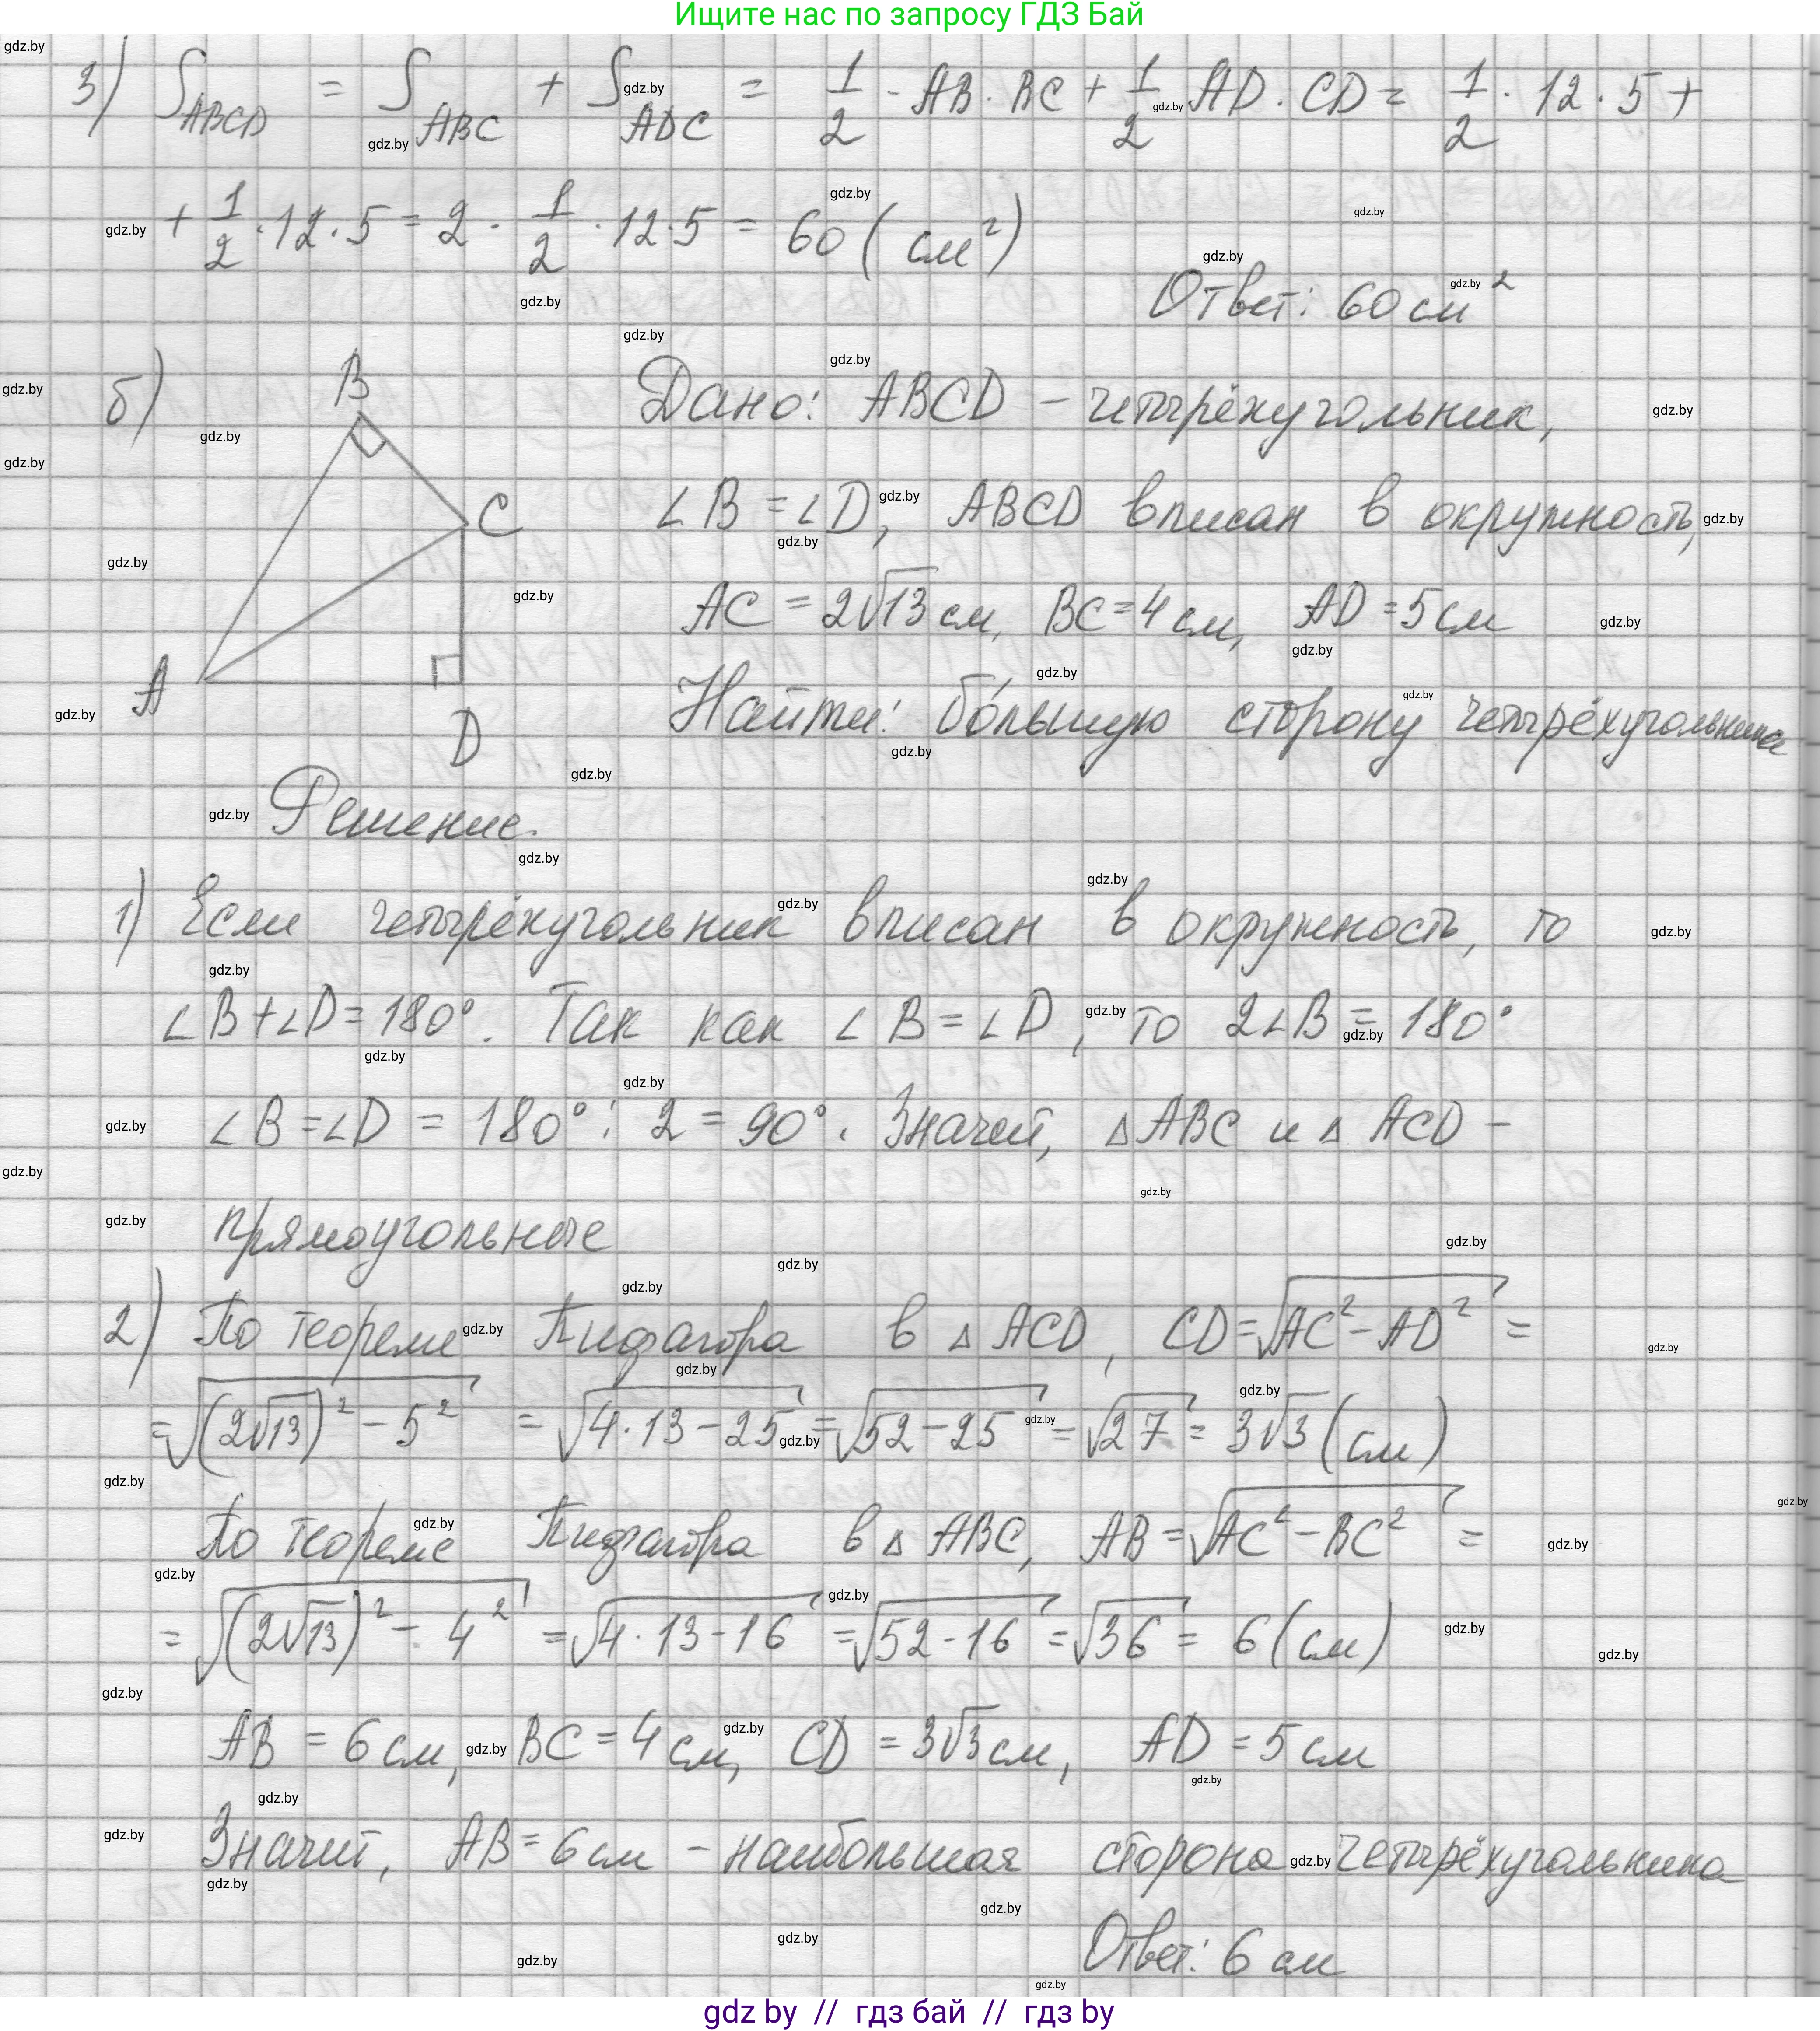 Ищите нас по запросу ГДЗ Бай
3) S_ABCD = S_ABC + S_ADC = 1/2 · AB · BC + 1/2 · AD · CD = 1/2 · 12 · 5 +
+ 1/2 · 12 · 5 = 2 · 1/2 · 12 · 5 = 60 (см²)
Ответ: 60 см²
б) Дано: ABCD – четырёхугольник,
∠B = ∠D, ABCD вписан в окружность,
AC = 2√13 см, BC = 4 см, AD = 5 см
Найти: бо́льшую сторону четырёхугольника
B
C
A
D
Решение.
1) Если четырёхугольник вписан в окружность, то
∠B + ∠D = 180°. Так как ∠B = ∠D, то 2∠B = 180°
∠B = ∠D = 180° : 2 = 90°. Значит, △ABC и △ACD –
прямоугольные
2) По теореме Пифагора в △ACD, CD = √(AC² – AD²) =
= √((2√13)² – 5²) = √(4·13 – 25) = √(52 – 25) = √27 = 3√3 (см)
По теореме Пифагора в △ABC, AB = √(AC² – BC²) =
= √((2√13)² – 4²) = √(4·13 – 16) = √(52 – 16) = √36 = 6 (см)
AB = 6 см, BC = 4 см, CD = 3√3 см, AD = 5 см
Значит, AB = 6 см – наибольшая сторона четырёхугольника
Ответ: 6 см
gdz by // гдз бай // гдз by